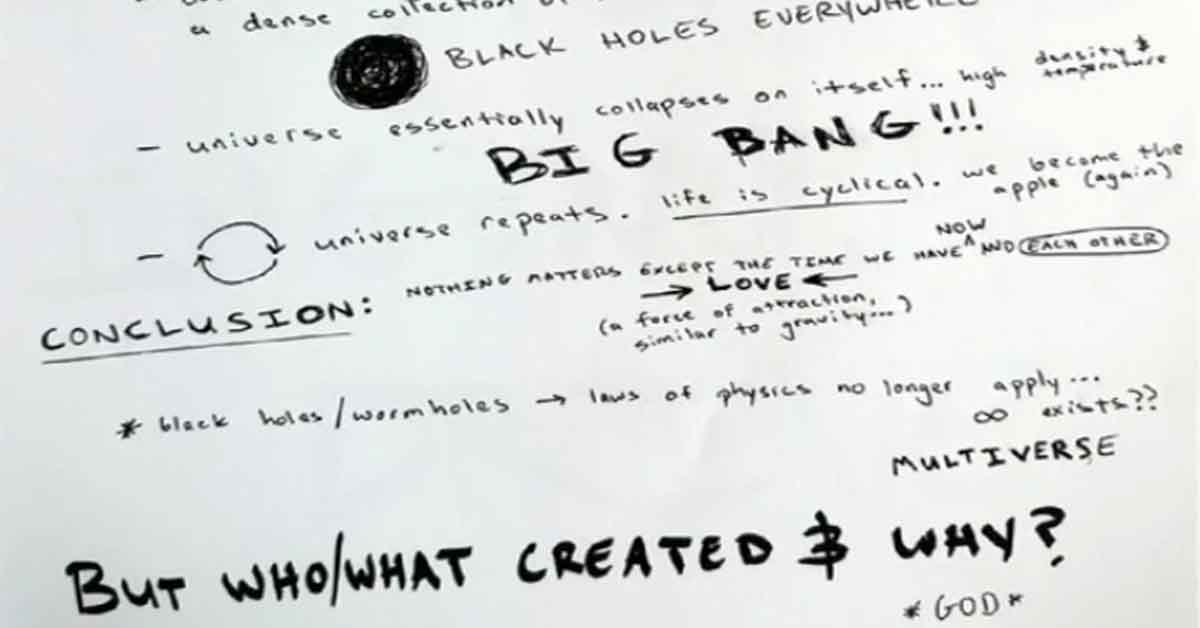 a dense collection of
BLACK HOLES EVERYWHERE
- universe essentially collapses on itself... high density & temperature
BIG BANG!!!
- universe repeats. life is cyclical. we become the apple (again)
CONCLUSION: NOTHING MATTERS EXCEPT THE TIME WE HAVE ^ NOW AND EACH OTHER
→ LOVE ←
(a force of attraction,
similar to gravity...)
* black holes/wormholes → laws of physics no longer apply...
∞ exists??
MULTIVERSE
BUT WHO/WHAT CREATED & WHY?
*GOD*